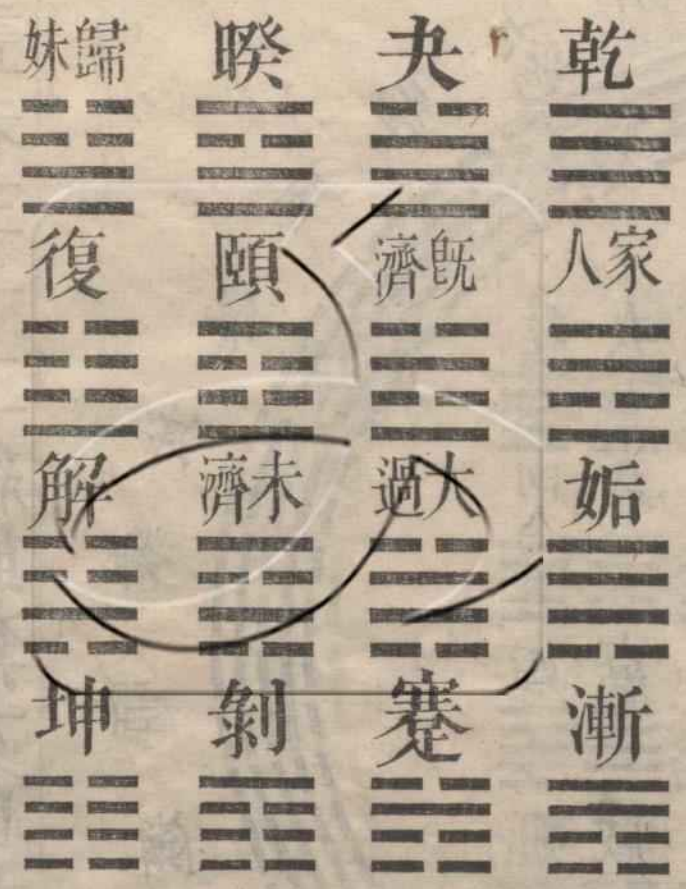 乾 夬 暌 歸妹
家人 旣濟 頤 復
姤 大過 未濟 解
漸 蹇 剝 坤